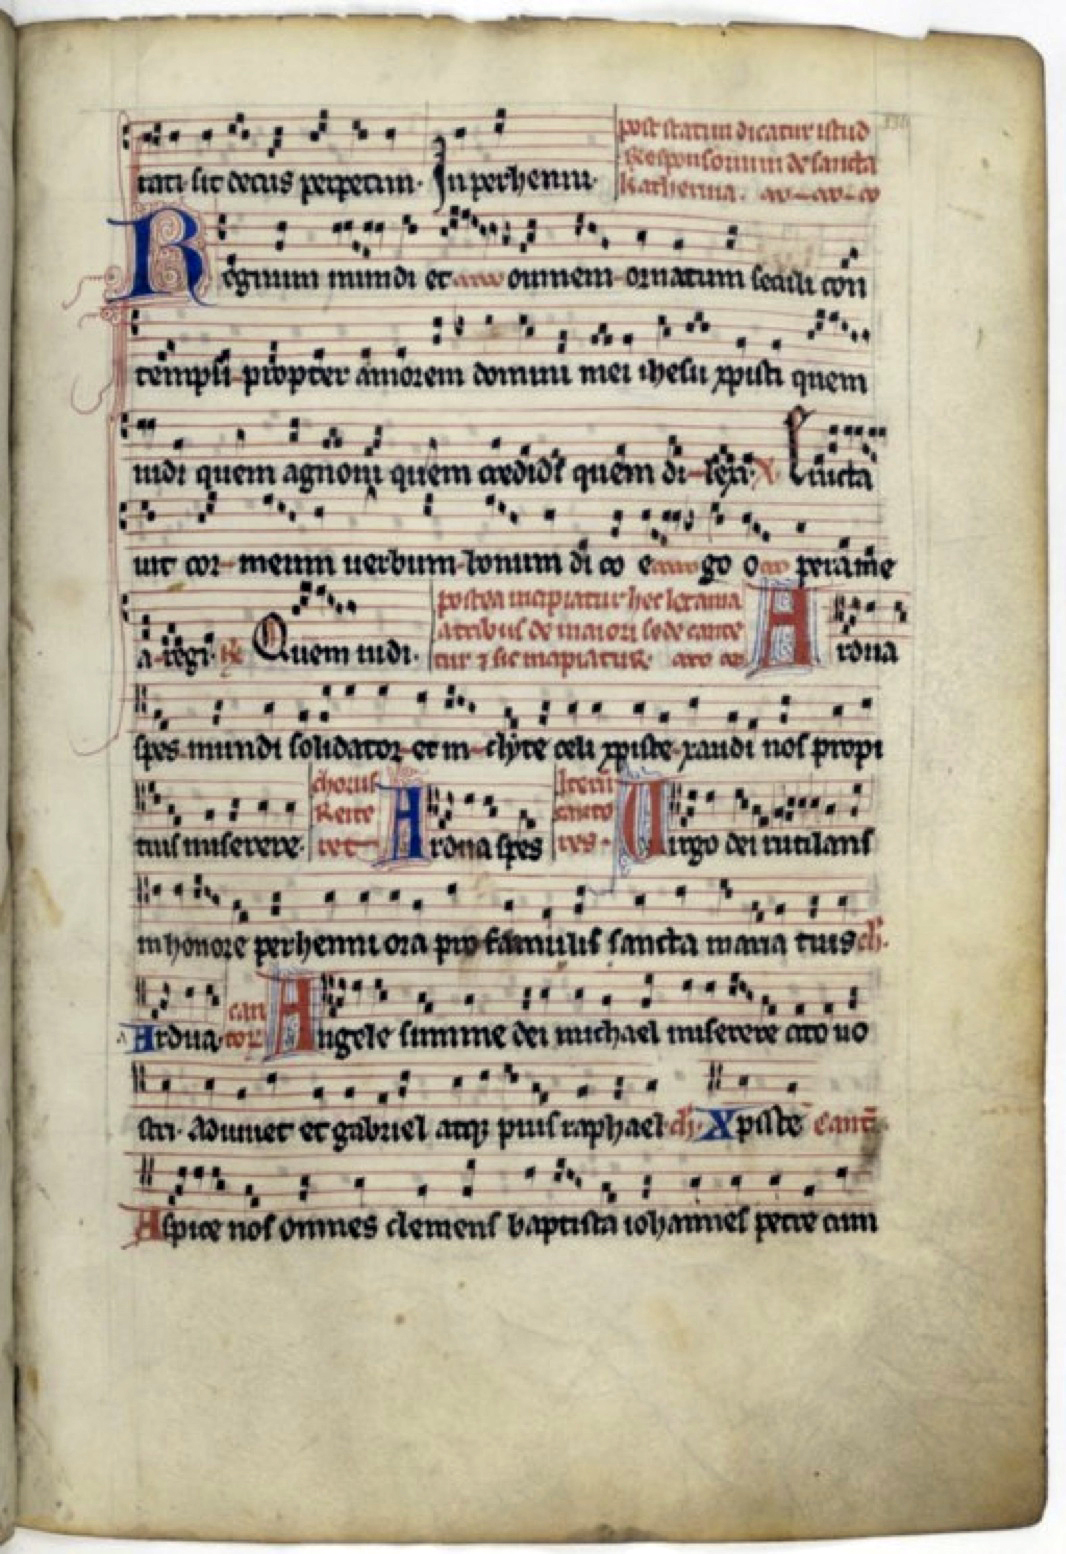 tati sit decus perpetim. In perhenni.
post statim dicatur istud
Responsorium de sancta
katherina.
Regnum mundi et omnem ornatum seculi con
tempsi propter amorem domini mei ihesu xpisti quem
uidi quem agnoui quem credidi quem di-lexi. V. Eructa
uit cor meum uerbum bonum dico ego o perame
a regi. R. Quem uidi.
postea incipiatur hec letania
a tribus de maiori sede cante
tur ⁊ sic incipiatur.
Ardua
spes mundi solidator et in clyte celi xpiste xaudi nos propi
tius miserere.
chorus
Reite
ret
Ardua spes
Iterum
canto
res.
Uirgo dei rutilans
in honore perhenni ora pro famulis sancta maria tuis ch.
Ardua.
can
tor
Angele summe dei michael miserere cito uo
stri. Adiuuet et gabriel atqꝫ pius raphael. ch. Xpiste cant
Aspice nos omnes clemens baptista iohannes petre cum